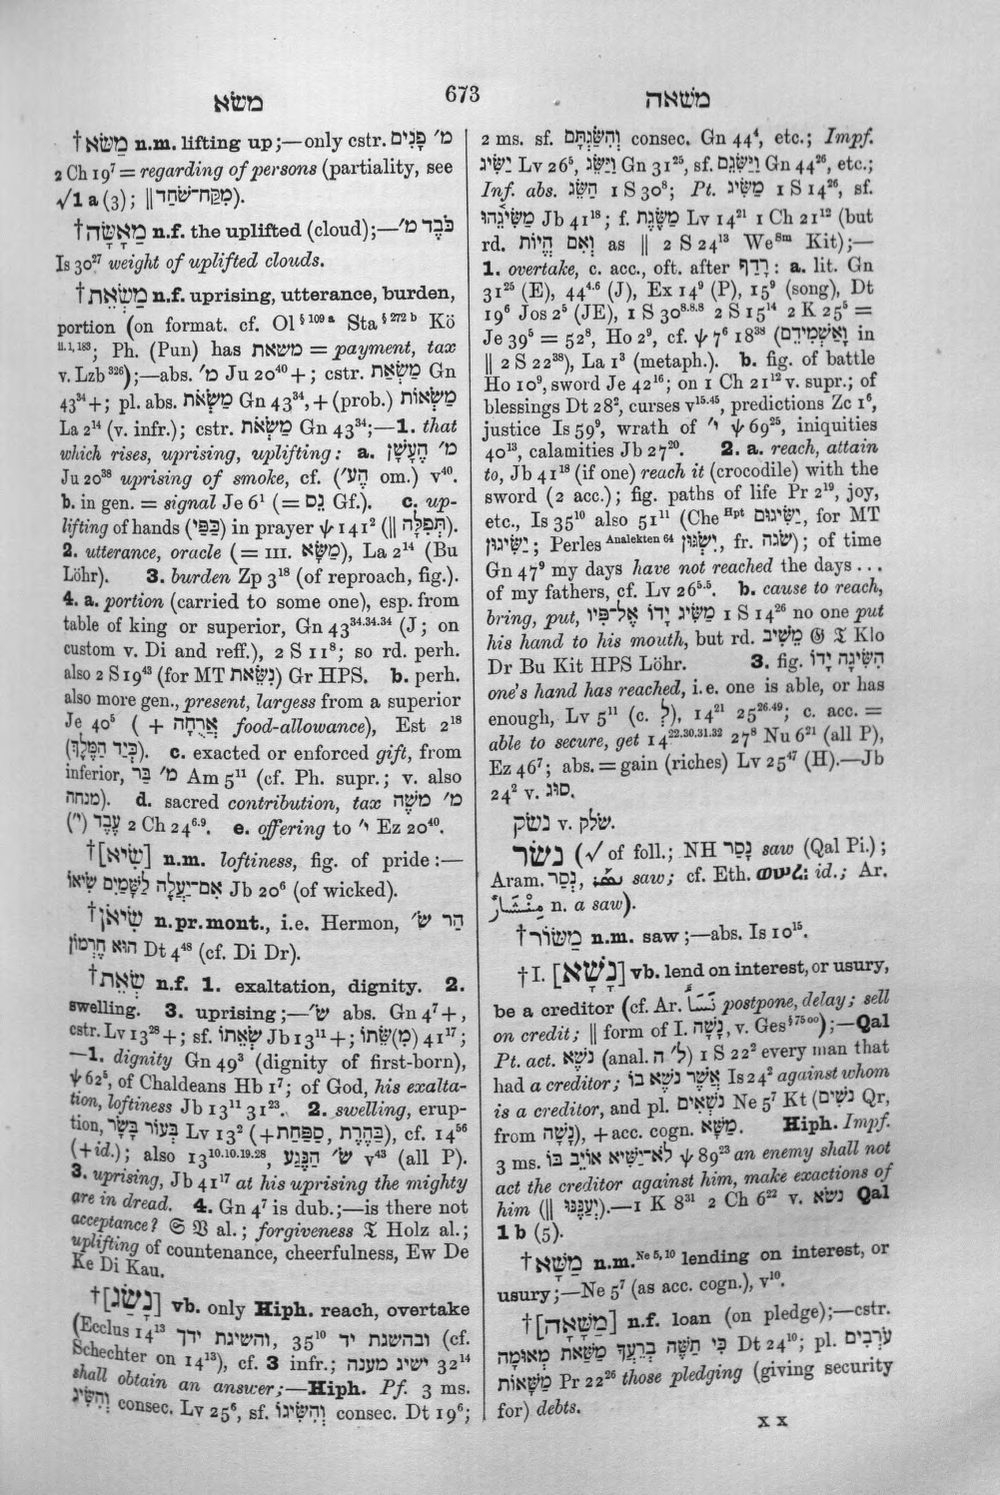 משׂא
673
משׁאה
† מַשּׂא n.m. lifting up;—only cstr. מ׳ פָּנִים
2 Ch 19⁷ = regarding of persons (partiality, see
√1 a (3); ‖ מִקַּח־שֹׁחַד).
† מַשָּׂאָה n.f. the uplifted (cloud);—כֹּבֶד מ׳
Is 30²⁷ weight of uplifted clouds.
† מַשְׂאֵת n.f. uprising, utterance, burden,
portion (on format. cf. Ol § 109 a Sta § 272 b Kö
ii.1, 183; Ph. (Pun) has משאת = payment, tax
v. Lzb 326);—abs. מ׳ Ju 20⁴⁰ +; cstr. מַשְׂאַת Gn
43³⁴ +; pl. abs. מַשְׂאֹת Gn 43³⁴, + (prob.) מַשְׂאוֹת
La 2¹⁴ (v. infr.); cstr. מַשְׂאֹת Gn 43³⁴;—1. that
which rises, uprising, uplifting: a. מ׳ הֶעָשָׁן
Ju 20³⁸ uprising of smoke, cf. (הֶע׳ om.) v⁴⁰.
b. in gen. = signal Je 6¹ (= נֵס Gf.). c. up-
lifting of hands (כַּפַּי) in prayer ψ 141² (‖ תְּפִלָּה).
2. utterance, oracle (= III. מַשָּׂא), La 2¹⁴ (Bu
Löhr). 3. burden Zp 3¹⁸ (of reproach, fig.).
4. a. portion (carried to some one), esp. from
table of king or superior, Gn 43³⁴·³⁴·³⁴ (J; on
custom v. Di and reff.), 2 S 11⁸; so rd. perh.
also 2 S 19⁴³ (for MT נִשֵּׂאת) Gr HPS. b. perh.
also more gen., present, largess from a superior
Je 40⁵ ( + אֲרֻחָה food-allowance), Est 2¹⁸
(כְּיַד הַמֶּלֶךְ). c. exacted or enforced gift, from
inferior, מ׳ בַּר Am 5¹¹ (cf. Ph. supr.; v. also
מנחה). d. sacred contribution, tax מ׳ מֹשֶׁה
עֶבֶד (י׳) 2 Ch 24⁶·⁹. e. offering to י׳ Ez 20⁴⁰.
† [שִׂיא] n.m. loftiness, fig. of pride:—
אִם־יַעֲלֶה לַשָּׁמַיִם שִׂיאוֹ Jb 20⁶ (of wicked).
† שִׂיאֹן n.pr.mont., i.e. Hermon, הַר שׂ׳
הוּא חֶרְמוֹן Dt 4⁴⁸ (cf. Di Dr).
† שְׂאֵת n.f. 1. exaltation, dignity. 2.
swelling. 3. uprising;—שׂ׳ abs. Gn 4⁷ +,
cstr. Lv 13²⁸ +; sf. שְׂאֵתוֹ Jb 13¹¹ +; (מִ)שֵּׂתוֹ 41¹⁷;
—1. dignity Gn 49³ (dignity of first-born),
ψ 62⁵, of Chaldeans Hb 1⁷; of God, his exalta-
tion, loftiness Jb 13¹¹ 31²³. 2. swelling, erup-
tion, בְּעוֹר בָּשָׂר Lv 13² (+ בַּהֶרֶת, סַפַּחַת), cf. 14⁵⁶
(+id.); also 13¹⁰·¹⁰·¹⁹·²⁸, שׂ׳ הַנֶּגַע v⁴³ (all P).
3. uprising, Jb 41¹⁷ at his uprising the mighty
are in dread. 4. Gn 4⁷ is dub.;—is there not
acceptance? 𝔖 𝔙 al.; forgiveness 𝔗 Holz al.;
uplifting of countenance, cheerfulness, Ew De
Ke Di Kau.
† [נָשַׂג] vb. only Hiph. reach, overtake
(Ecclus 14¹³ והשינת ידך, 35¹⁰ ובהשגת יד (cf.
Schechter on 14¹³), cf. 3 infr.; ישיג מענה 32¹⁴
shall obtain an answer;—Hiph. Pf. 3 ms.
וְהִשִּׂיג consec. Lv 25⁶, sf. וְהִשִּׂיגוֹ consec. Dt 19⁶;
2 ms. sf. וְהִשַּׂגְתָּם consec. Gn 44⁴, etc.; Impf.
יַשִּׂיג Lv 26⁵, וַיַּשֵּׂג Gn 31²⁵, sf. וַיַּשִּׂגֵם Gn 44²⁶, etc.;
Inf. abs. הַשֵּׂג 1 S 30⁸; Pt. מַשִּׂיג 1 S 14²⁶, sf.
מַשִּׂיגֵהוּ Jb 41¹⁸; f. מַשֶּׂגֶת Lv 14²¹ 1 Ch 21¹² (but
rd. וְאִם הֱיוֹת as ‖ 2 S 24¹³ We Sm Kit);—
1. overtake, c. acc., oft. after רָדַף: a. lit. Gn
31²⁵ (E), 44⁴·⁶ (J), Ex 14⁹ (P), 15⁹ (song), Dt
19⁶ Jos 2⁵ (JE), 1 S 30⁸·⁸·⁸ 2 S 15¹⁴ 2 K 25⁵ =
Je 39⁵ = 52⁸, Ho 2⁹, cf. ψ 7⁶ 18³⁸ (וָאַשְׁמִידֵם in
‖ 2 S 22³⁸), La 1³ (metaph.). b. fig. of battle
Ho 10⁹, sword Je 42¹⁶; on 1 Ch 21¹² v. supr.; of
blessings Dt 28², curses v¹⁵·⁴⁵, predictions Zc 1⁶,
justice Is 59⁹, wrath of י׳ ψ 69²⁵, iniquities
40¹³, calamities Jb 27²⁰. 2. a. reach, attain
to, Jb 41¹⁸ (if one) reach it (crocodile) with the
sword (2 acc.); fig. paths of life Pr 2¹⁹, joy,
etc., Is 35¹⁰ also 51¹¹ (Che Hpt יַשִּׂיגוּם, for MT
יַשִּׂיגוּן; Perles Analekten 64 יִשְׂגּוּן, fr. שׂגה); of time
Gn 47⁹ my days have not reached the days ...
of my fathers, cf. Lv 26⁵·⁵. b. cause to reach,
bring, put, מַשִּׂיג יָדוֹ אֶל־פִּיו 1 S 14²⁶ no one put
his hand to his mouth, but rd. מֵשִׁיב 𝔊 𝔗 Klo
Dr Bu Kit HPS Löhr. 3. fig. הִשִּׂיגָה יָדוֹ
one's hand has reached, i.e. one is able, or has
enough, Lv 5¹¹ (c. לְ), 14²¹ 25²⁶·⁴⁹; c. acc. =
able to secure, get 14²²·³⁰·³¹·³² 27⁸ Nu 6²¹ (all P),
Ez 46⁷; abs. = gain (riches) Lv 25⁴⁷ (H).—Jb
24² v. סוּג.
נשׂק v. שׂלק.
נשׂר (√ of foll.; NH נָסַר saw (Qal Pi.);
Aram. נְסַר, saw; cf. Eth. id.; Ar.
مِنْشَار n. a saw).
† מַשּׂוֹר n.m. saw;—abs. Is 10¹⁵.
† I. [נָשָׁא] vb. lend on interest, or usury,
be a creditor (cf. Ar. نَسَأَ postpone, delay; sell
on credit; ‖ form of I. נָשָׁה, v. Ges § 75 oo);—Qal
Pt. act. נֹשֶׁא (anal. ל׳ ה) 1 S 22² every man that
had a creditor; אֲשֶׁר נֹשֶׁא בוֹ Is 24² against whom
is a creditor, and pl. נֹשְׁאִים Ne 5⁷ Kt (נֹשִׁים Qr,
from נָשָׁה), + acc. cogn. מַשָּׁא. Hiph. Impf.
3 ms. לֹא־יַשִּׁיא אוֹיֵב בּוֹ ψ 89²³ an enemy shall not
act the creditor against him, make exactions of
him (‖ יְעַנֶּנּוּ).—1 K 8³¹ 2 Ch 6²² v. נשׂא Qal
1 b (5).
† מַשָּׁא n.m. Ne 5, 10 lending on interest, or
usury;—Ne 5⁷ (as acc. cogn.), v¹⁰.
† [מַשָּׁאָה] n.f. loan (on pledge);—cstr.
כִּי תַשֶּׁה בְרֵעֲךָ מַשַּׁאת מְאוּמָה Dt 24¹⁰; pl. עֹרְבִים
מַשָּׁאוֹת Pr 22²⁶ those pledging (giving security
for) debts.
X X